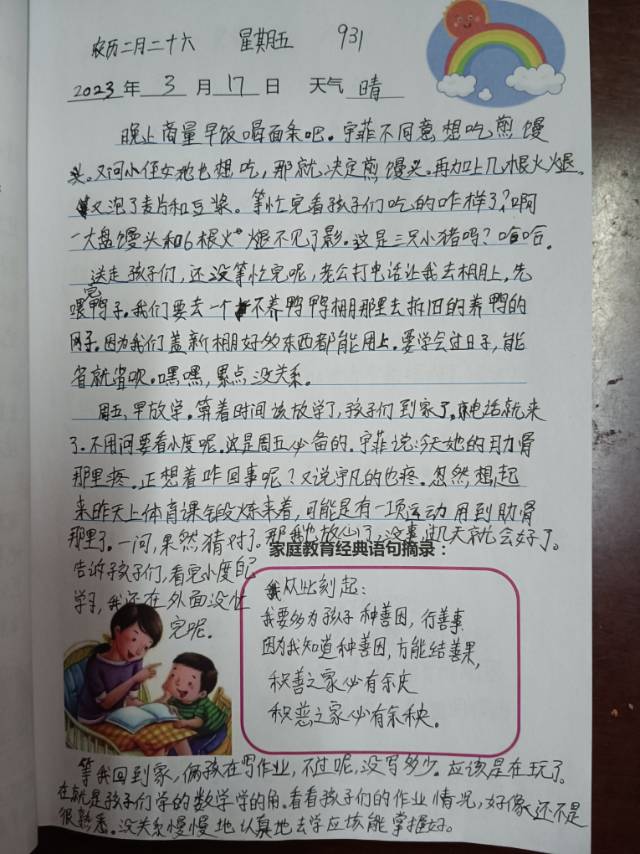 农历二月二十六 星期五 931
2023年 3 月 17 日 天气 晴
晚上商量早饭喝面条吧。宇菲不同意想吃煎馒
头。又问小侄女她也想吃，那就决定煎馒头。再加上几根火火腿。
又泡了麦片和豆浆。等忙完看孩子们吃的咋样了？啊
一大盘馒头和6根火腿不见了影。这是三只小猪吗？哈哈。
送走孩子们，还没等忙完呢，老公打电话让我去棚上，先
喂完鸭子。我们要去一个不养鸭鸭棚那里去拆旧的养鸭的
网子。因为我们盖新棚好多东西都能用上。要学会过日子，能
省就省吹。嘿嘿，累点没关系。
周五，早放学。算着时间该放学了，孩子们到家了，电话就来
了。不用问要看小度呢。这是周五必备的。宇菲说：今天她的肋骨
那里疼。正想着咋回事呢？又说宇凡的也疼。忽然想起
来昨天上体育课锻炼来着，可能是有一项运动用到肋骨
那里了。一问，果然猜对了。那我也放心了，没事过几天就会好了。
家庭教育经典语句摘录：
告诉孩子们，看完小度自己
学习，我还在外面没忙
完呢。
我从此刻起：
我要多为孩子种善因，行善事
因为我知道种善因，方能结善果，
积善之家必有余庆
积恶之家必有余殃。
等我回到家，俩孩在写作业，不过呢，没写多少。应该是在玩了。
在就是孩子们学的数学学的角。看看孩子们的作业情况，好像还不是
很熟悉。没关系慢慢地认真地去学应该能掌握好。